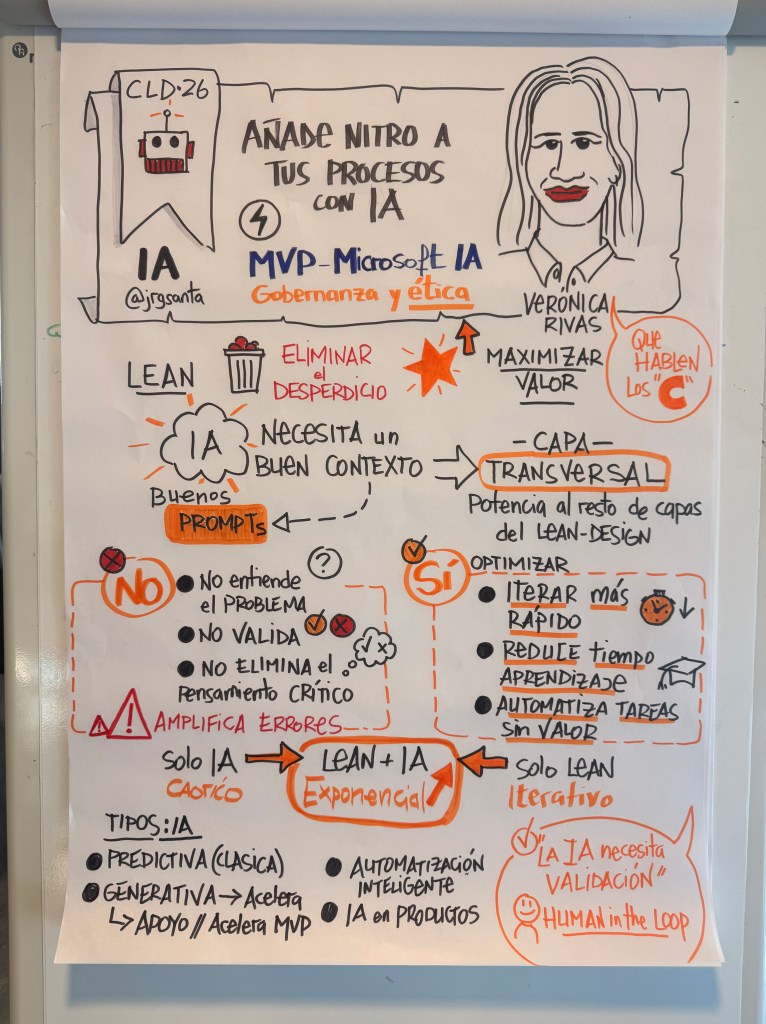 CLD·26
AÑADE NITRO A
TUS PROCESOS
con IA
IA
@jrgsanta
MVP-Microsoft IA
Gobernanza y ética
VERÓNICA
RIVAS
QUE
HABLEN
LOS "C"
LEAN
ELIMINAR
el
DESPERDICIO
MAXIMIZAR
VALOR
IA
NECESITA un
BUEN CONTEXTO
Buenos
PROMPTs
-CAPA-
TRANSVERSAL
Potencia al resto de capas
del LEAN-DESIGN
NO
?
No entiende
el PROBLEMA
NO VALIDA
NO ELIMINA el
Pensamiento CRÍTICO
AMPLIFICA ERRORES
SÍ
OPTIMIZAR
ITERAR más
RÁPIDO
REDUCE tiempo
APRENDIZAJE
AUTOMATIZA TAREAS
sin VALOR
Solo IA
CAOTICO
LEAN + IA
Exponencial
Solo LEAN
Iterativo
TIPOS: IA
PREDICTIVA (CLASICA)
GENERATIVA → Acelera
↳ APOYO // Acelera MVP
AUTOMATIZACIÓN
INTELIGENTE
IA en PRODUCTOS
"LA IA necesita
VALIDACIÓN"
HUMAN in the LOOP